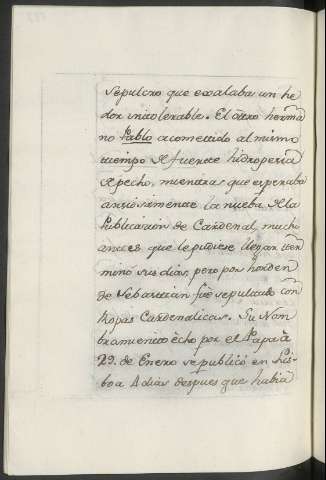 sepulcro que exalaba un he
dor intolerable. El otro herma
no Pablo acometido al mismo
tiempo de fuerte hidropesia
de pecho, mientras que esperaba
ansiosamente la nueba de la
Publicacion de Cardenal, mucho
antes que le pudiese llegar ter
minò sus dias, pero por horden
de Sebastian fuè sepultado con
Ropas Cardenalicas. Su Nom
bramiento ècho por el Papa à
29. de Enero se publicó en Lis-
boa 4 dias despues que habia